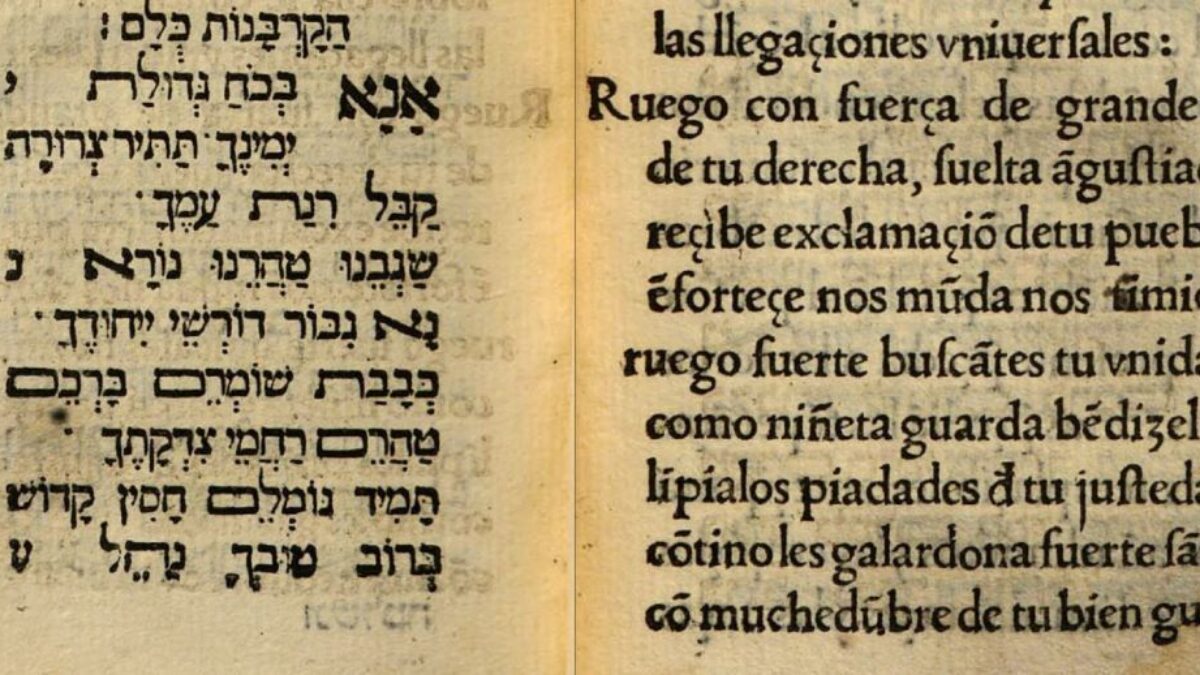 הַקָרְבָּנוֹת כְּלָם :
אָנָא בְּכֹחַ גְּדוּלַת י
יְמִינֶךָ תַּתִּיר צְרוּרָה
קַבֵּל רִנַת עַמֶךָ ·
שַׂגְבֵנוּ טַהֲרֵנוּ נוֹרָא נ
נָא גִבּוֹר דוֹרְשֵׁי יִיחוּדֶךָ ·
כְּבָבַת שׁוֹמְרֵם בָּרְכֵם
טַהֲרֵם רַחֲמֵי צִדְקָתֶךָ ·
תָּמִיד גּוֹמְלֵם חָסִין קָדוֹשׁ
בְּרוֹב טוּבְךָ נַהֵל ע
las llegaçiones vniuerſales :
Ruego con fuerça de grande
de tu derecha, ſuelta ãguſtia
reçibe exclamaçiõ detu pueb
ẽforteçe nos mũda nos
ruego fuerte buſcãtes tu vnida
como niñeta guarda bẽdizel
lĩpialos piadades đ tu juſteda
cõtino les galardona fuerte ſã
cõ muchedũbre de tu bien gu